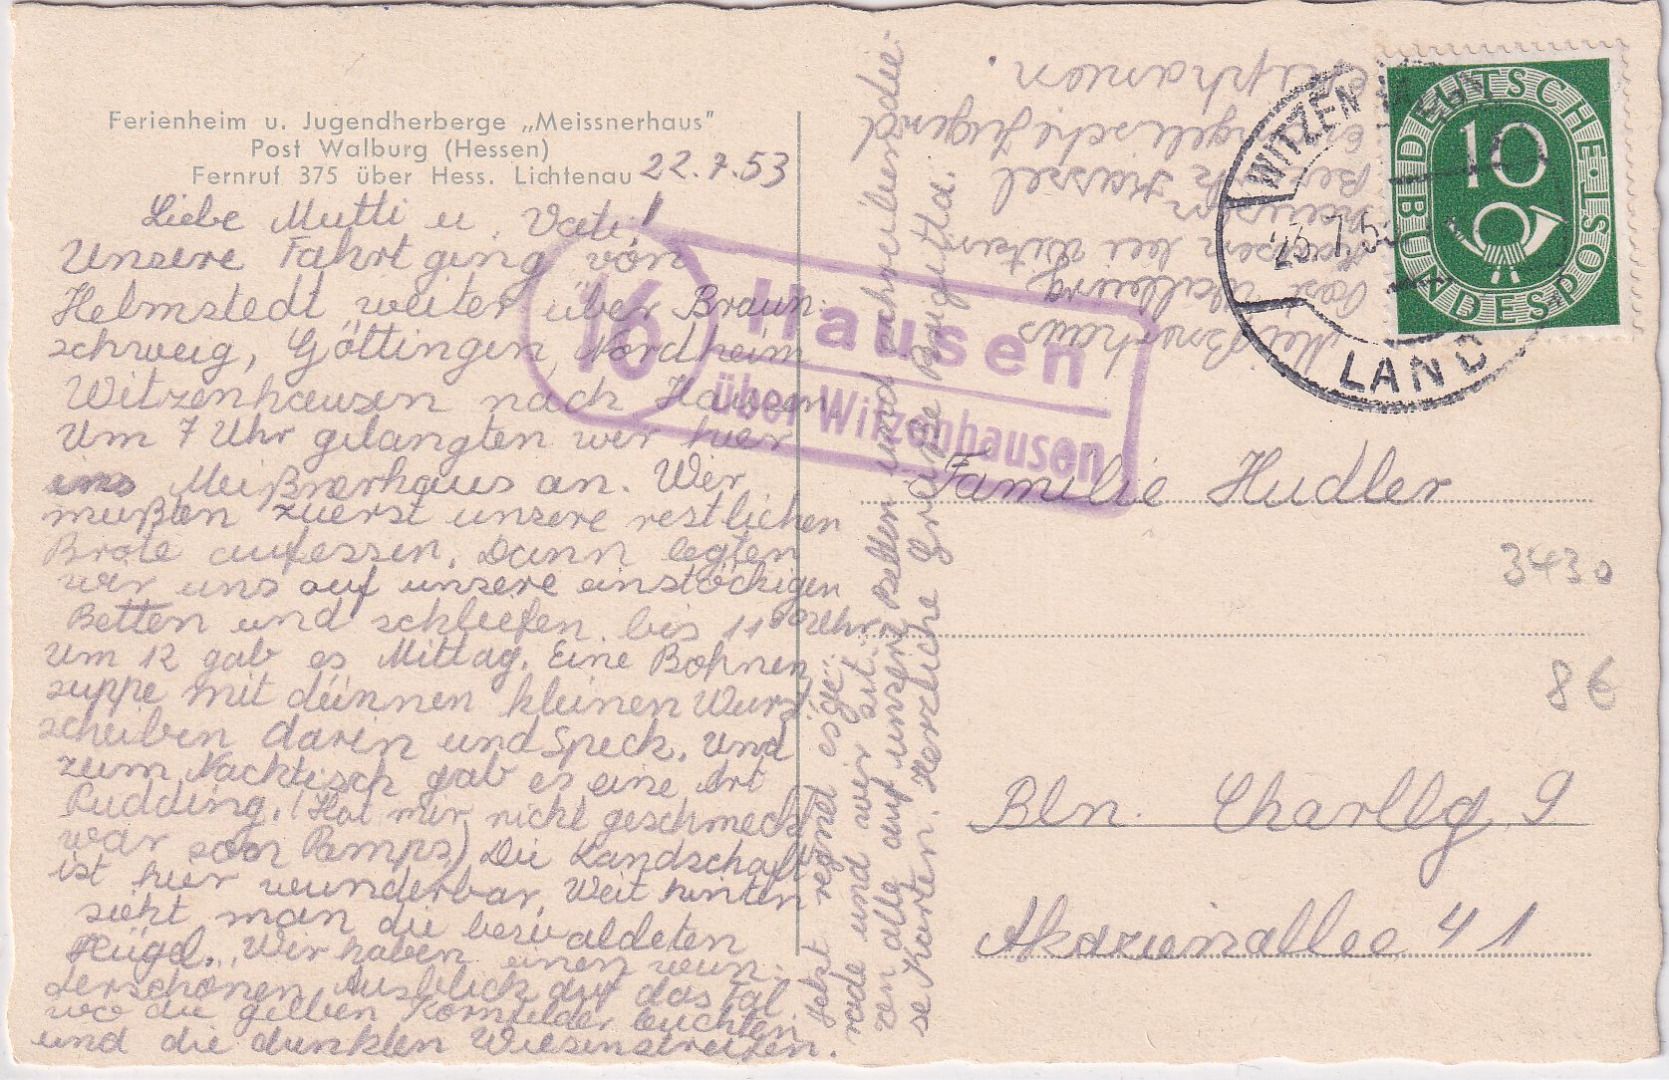 Ferienheim u. Jugendherberge „Meissnerhaus"
Post Walburg (Hessen)
Fernruf 375 über Hess. Lichtenau
22.7.53
Liebe Mutti u. Vati!
Unsere Fahrt ging von
Helmstedt weiter über Braun-
schweig, Göttingen, Nordheim
Witzenhausen nach Hausen.
Um 7 Uhr gelangten wir hier
ins Meißnerhaus an. Wir
mußten zuerst unsere restlichen
Brote aufessen. Dann legten
wir uns auf unsere einstöckigen
Betten und schliefen bis 11⁰⁰ Uhr.
Um 12 gab es Mittag. Eine Bohnen
suppe mit dünnen kleinen Wurst
scheiben darin und Speck. Und
zum Nachtisch gab es eine Art
Pudding. (Hat mir nicht geschmeckt
war son Pamps) Die Landschaft
ist hier wunderbar. Weit hinten
sieht man die bewaldeten
Hügel. Wir haben einen wun-
derschönen Ausblick auf das Tal
wo die gelben Kornfelder leuchten
und die dunklen Wiesenstreifen.
Jetzt regnet es ge-
rade und wir sit-
zen alle auf unsern Betten und schreiben die-
se Karten. Herzliche Grüße Brigitta.
Meißnerhaus
Post Walburg
Hausen bei Witzen
hausen
Bezirk Kassel
evangelische Jugend
16
Hausen
über Witzenhausen
WITZENHAUSEN
23.7.53
LAND
DEUTSCHE BUNDESPOST
10
Familie Hudler
Bln. Charllbg 9
Akazienallee 41
3430
8€